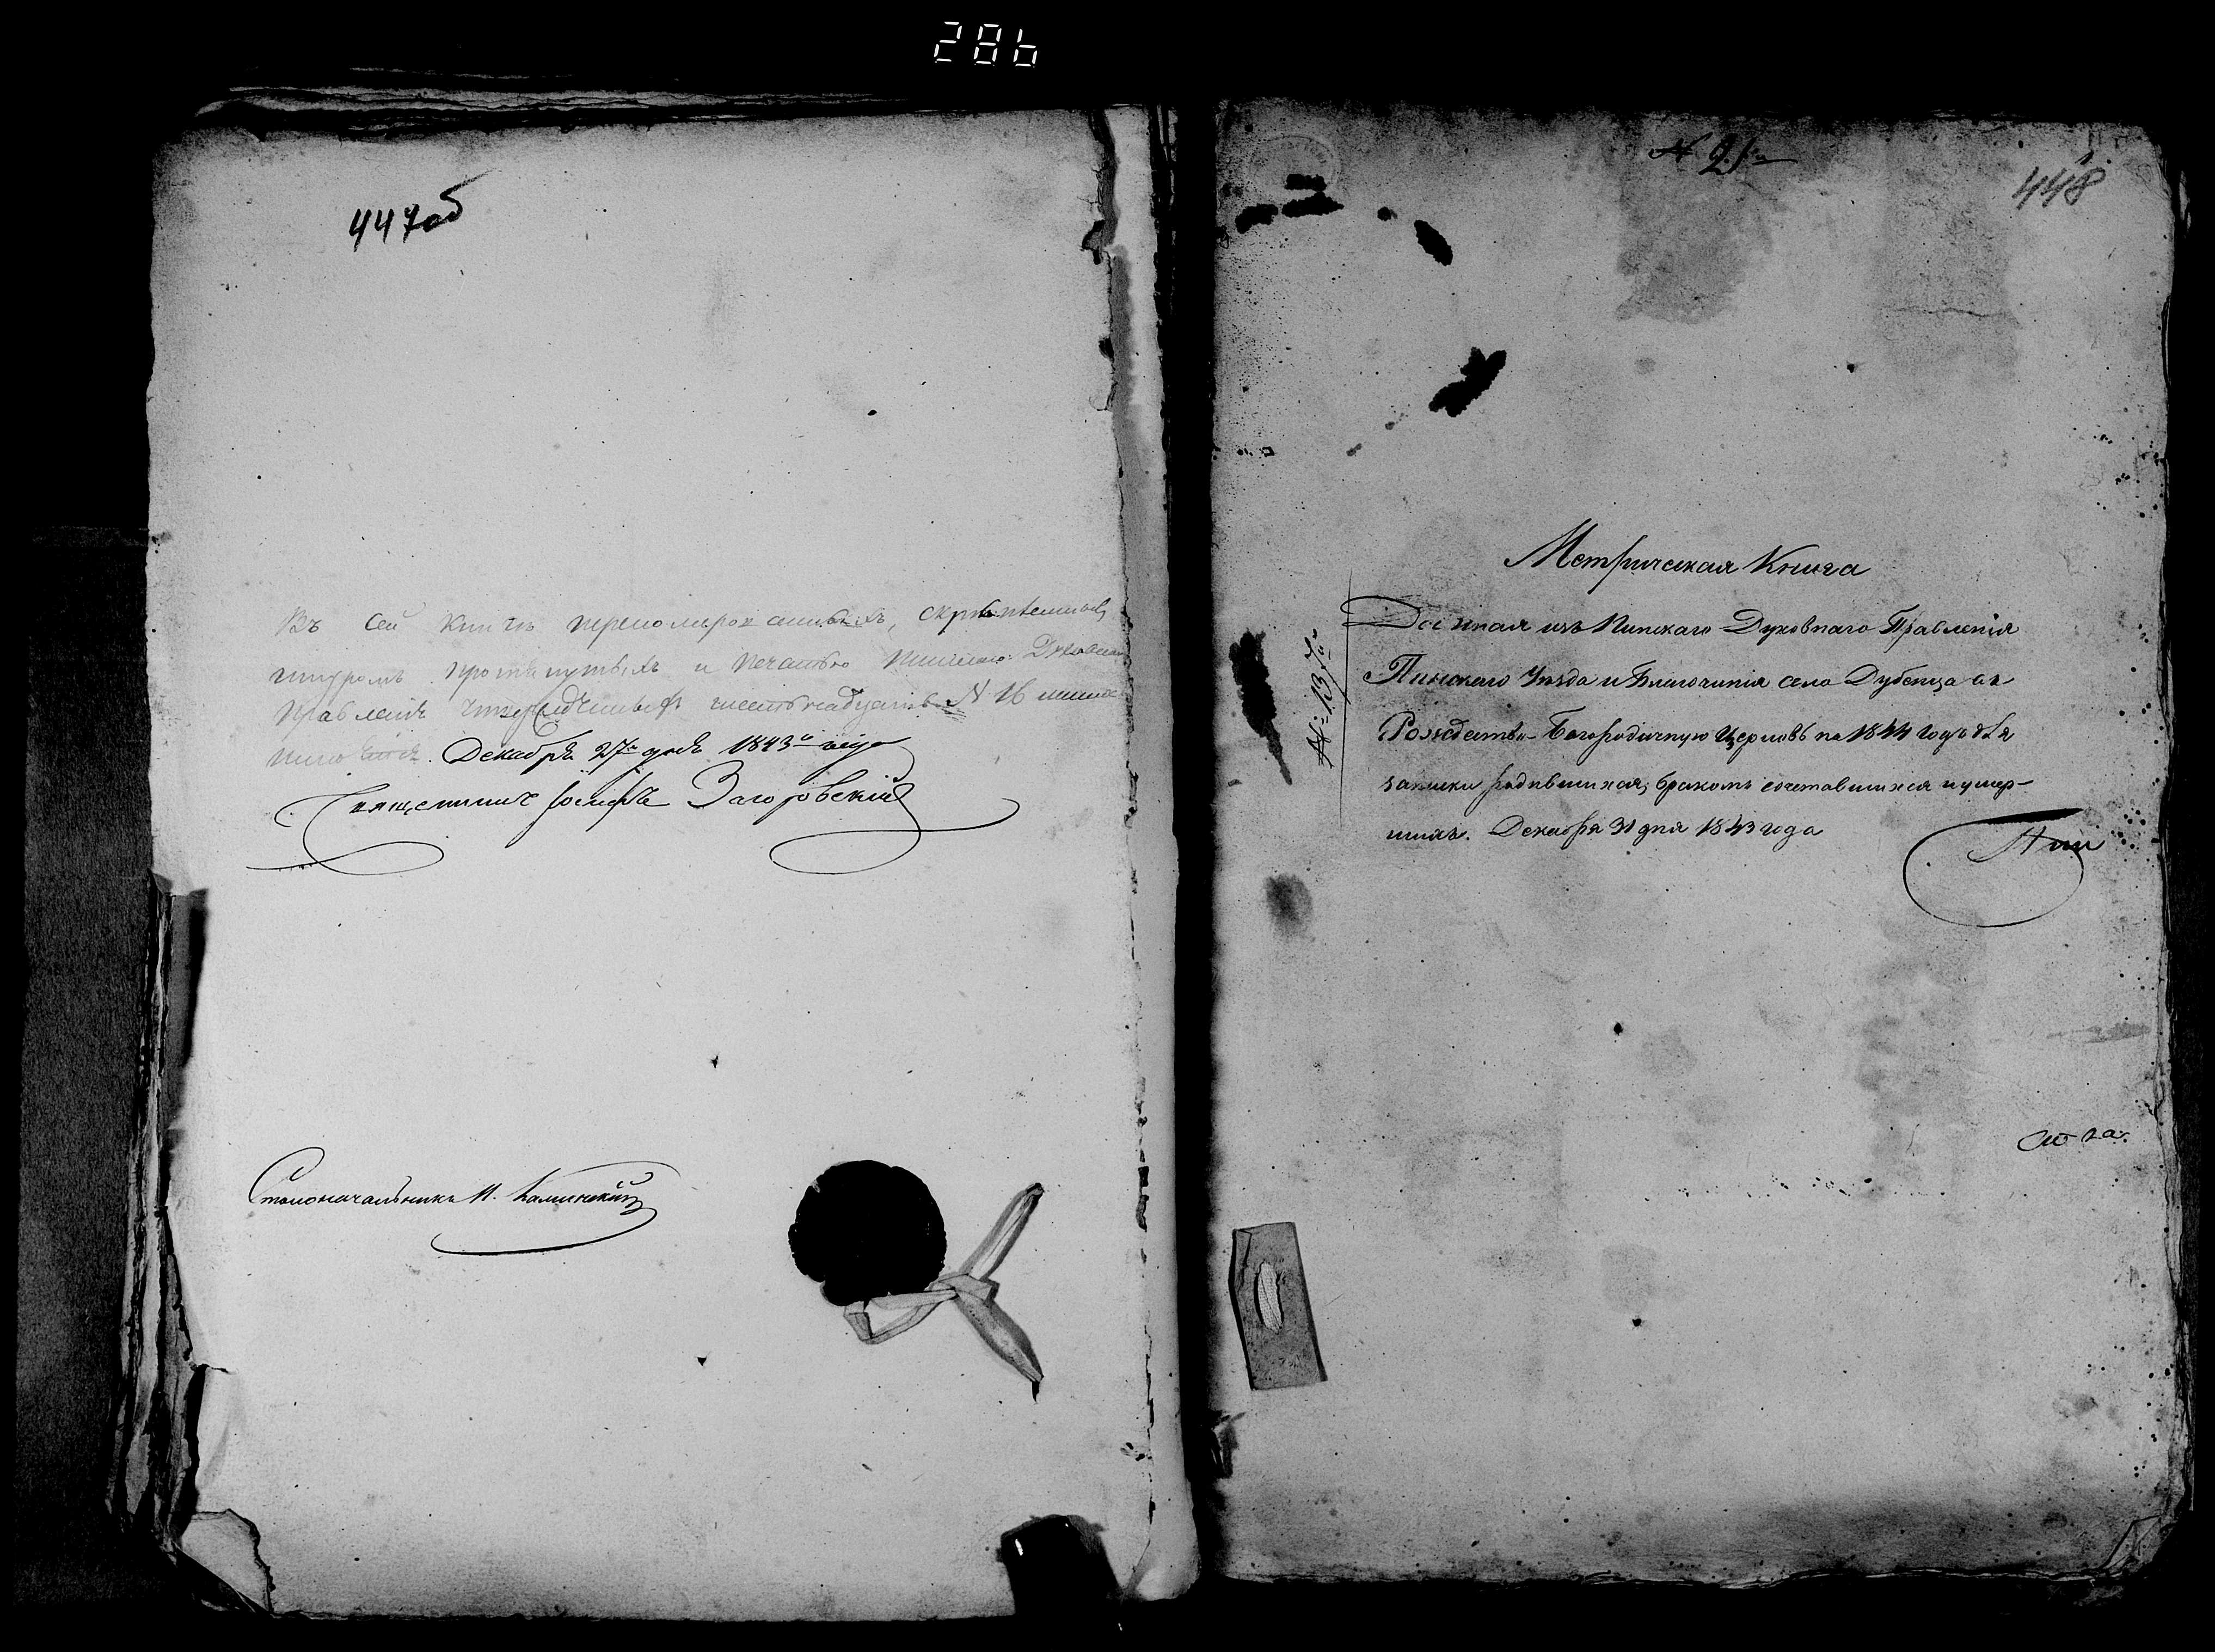 286
447об
Въ сей книгѣ перномерованныхъ, скрѣпленныхъ
шнуромъ протянутыхъ и печатью Пинскаго Духовнаго
Правленія утвержденныхъ шестьнадцать № 16 листо
Декабря 27 дня 1843 года
Священникъ Іосифъ Загоровскій
Столоначальникъ И. Калинскій
№ 21
448
№ 137
Метрическая Книга
Данная изъ Пинскаго Духовнаго Правленія
Пинскаго Уѣзда и Благочинія села Дубенца въ
Рождество-Богородичную Церковь на 1844 годъ для
записки родившихся, бракомъ сочетавшихся и умер-
шихъ. Декабря 31 дня 1843 года